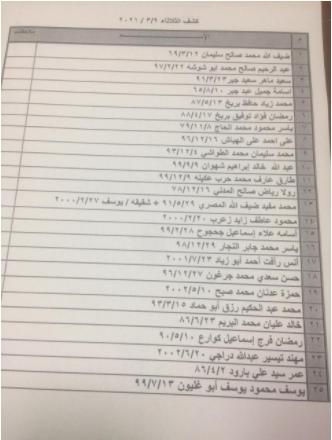 كشف الثلاثاء ٢٠٢١ / ٣/٩
م ملاحظات
ضيف الله محمد صالح سليمان ٦٩/٣/١٢
عبد الرحيم صالح محمد ابو شوشه ٩٧/٢/٢٢
سعيد ماهر سعيد جبر ٩١/٣/٢٣
اسامة جميل عبد جبر ٦٥/٨/١٠
محمد زياد حافظ بريخ ٨٧/٥/١٣
رمضان فؤاد توفيق بريخ ٨٨/٤/١٧
ياسر محمود محمد الحاج ٧٩/١١/٨
علي احمد علي الهباش ٩٦/١٢/١٦
محمد سليمان محمد الطواشي ٩٣/١٢/٤
عبد الله خالد إبراهيم شهوان ٩٩/٩/٩
طارق عارف محمد حرب عكيله ٩٩/١٢/٩
رولا رياض صالح المدني ٧٨/١٢/١٦
محمد مفيد ضيف الله المصري ٩١/٥/٢٩ + شقيقه / يوسف ٢٠٠٠/٢/٢٧
محمود عاطف زايد زعرب ٢٠٠٠/٢/٢٠
أسامه علاء إسماعيل جحجوح ٩٩/٢/٢٨
ياسر محمد جابر النجار ٩٨/١٢/٢٩
أنس رأفت أحمد أبو زياد ٢٠٠١/٧/٢٣
حسن سعدي محمد جرغون ٩٦/١٢/٢٧
حمزة عدنان محمد صبح ٢٠٠٢/٥/١٠
محمد عبد الحكيم رزق أبو حماد ٩٣/٣/١٥
خالد عليان محمد البريم ٨٦/٦/٢٣
رمضان فرج إسماعيل كوارع ٩٠/٥/١٠
مهند تيسير عبدالله دراجي ٢٠٠٢/٦/٢٠
عمر سيد علي بارود ٨٦/٤/٢
٢٥ يوسف محمود يوسف أبو غليون ٩٩/٧/١٣